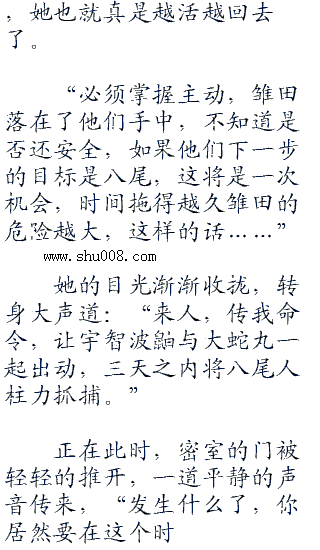 ，她也就真是越活越回去
了。
“必须掌握主动，雏田
落在了他们手中，不知道是
否还安全，如果他们下一步
的目标是八尾，这将是一次
机会，时间拖得越久雏田的
危险越大，这样的话……”
www.shu008.com
她的目光渐渐收拢，转
身大声道：“来人，传我命
令，让宇智波鼬与大蛇丸一
起出动，三天之内将八尾人
柱力抓捕。”
正在此时，密室的门被
轻轻的推开，一道平静的声
音传来，“发生什么了，你
居然要在这个时